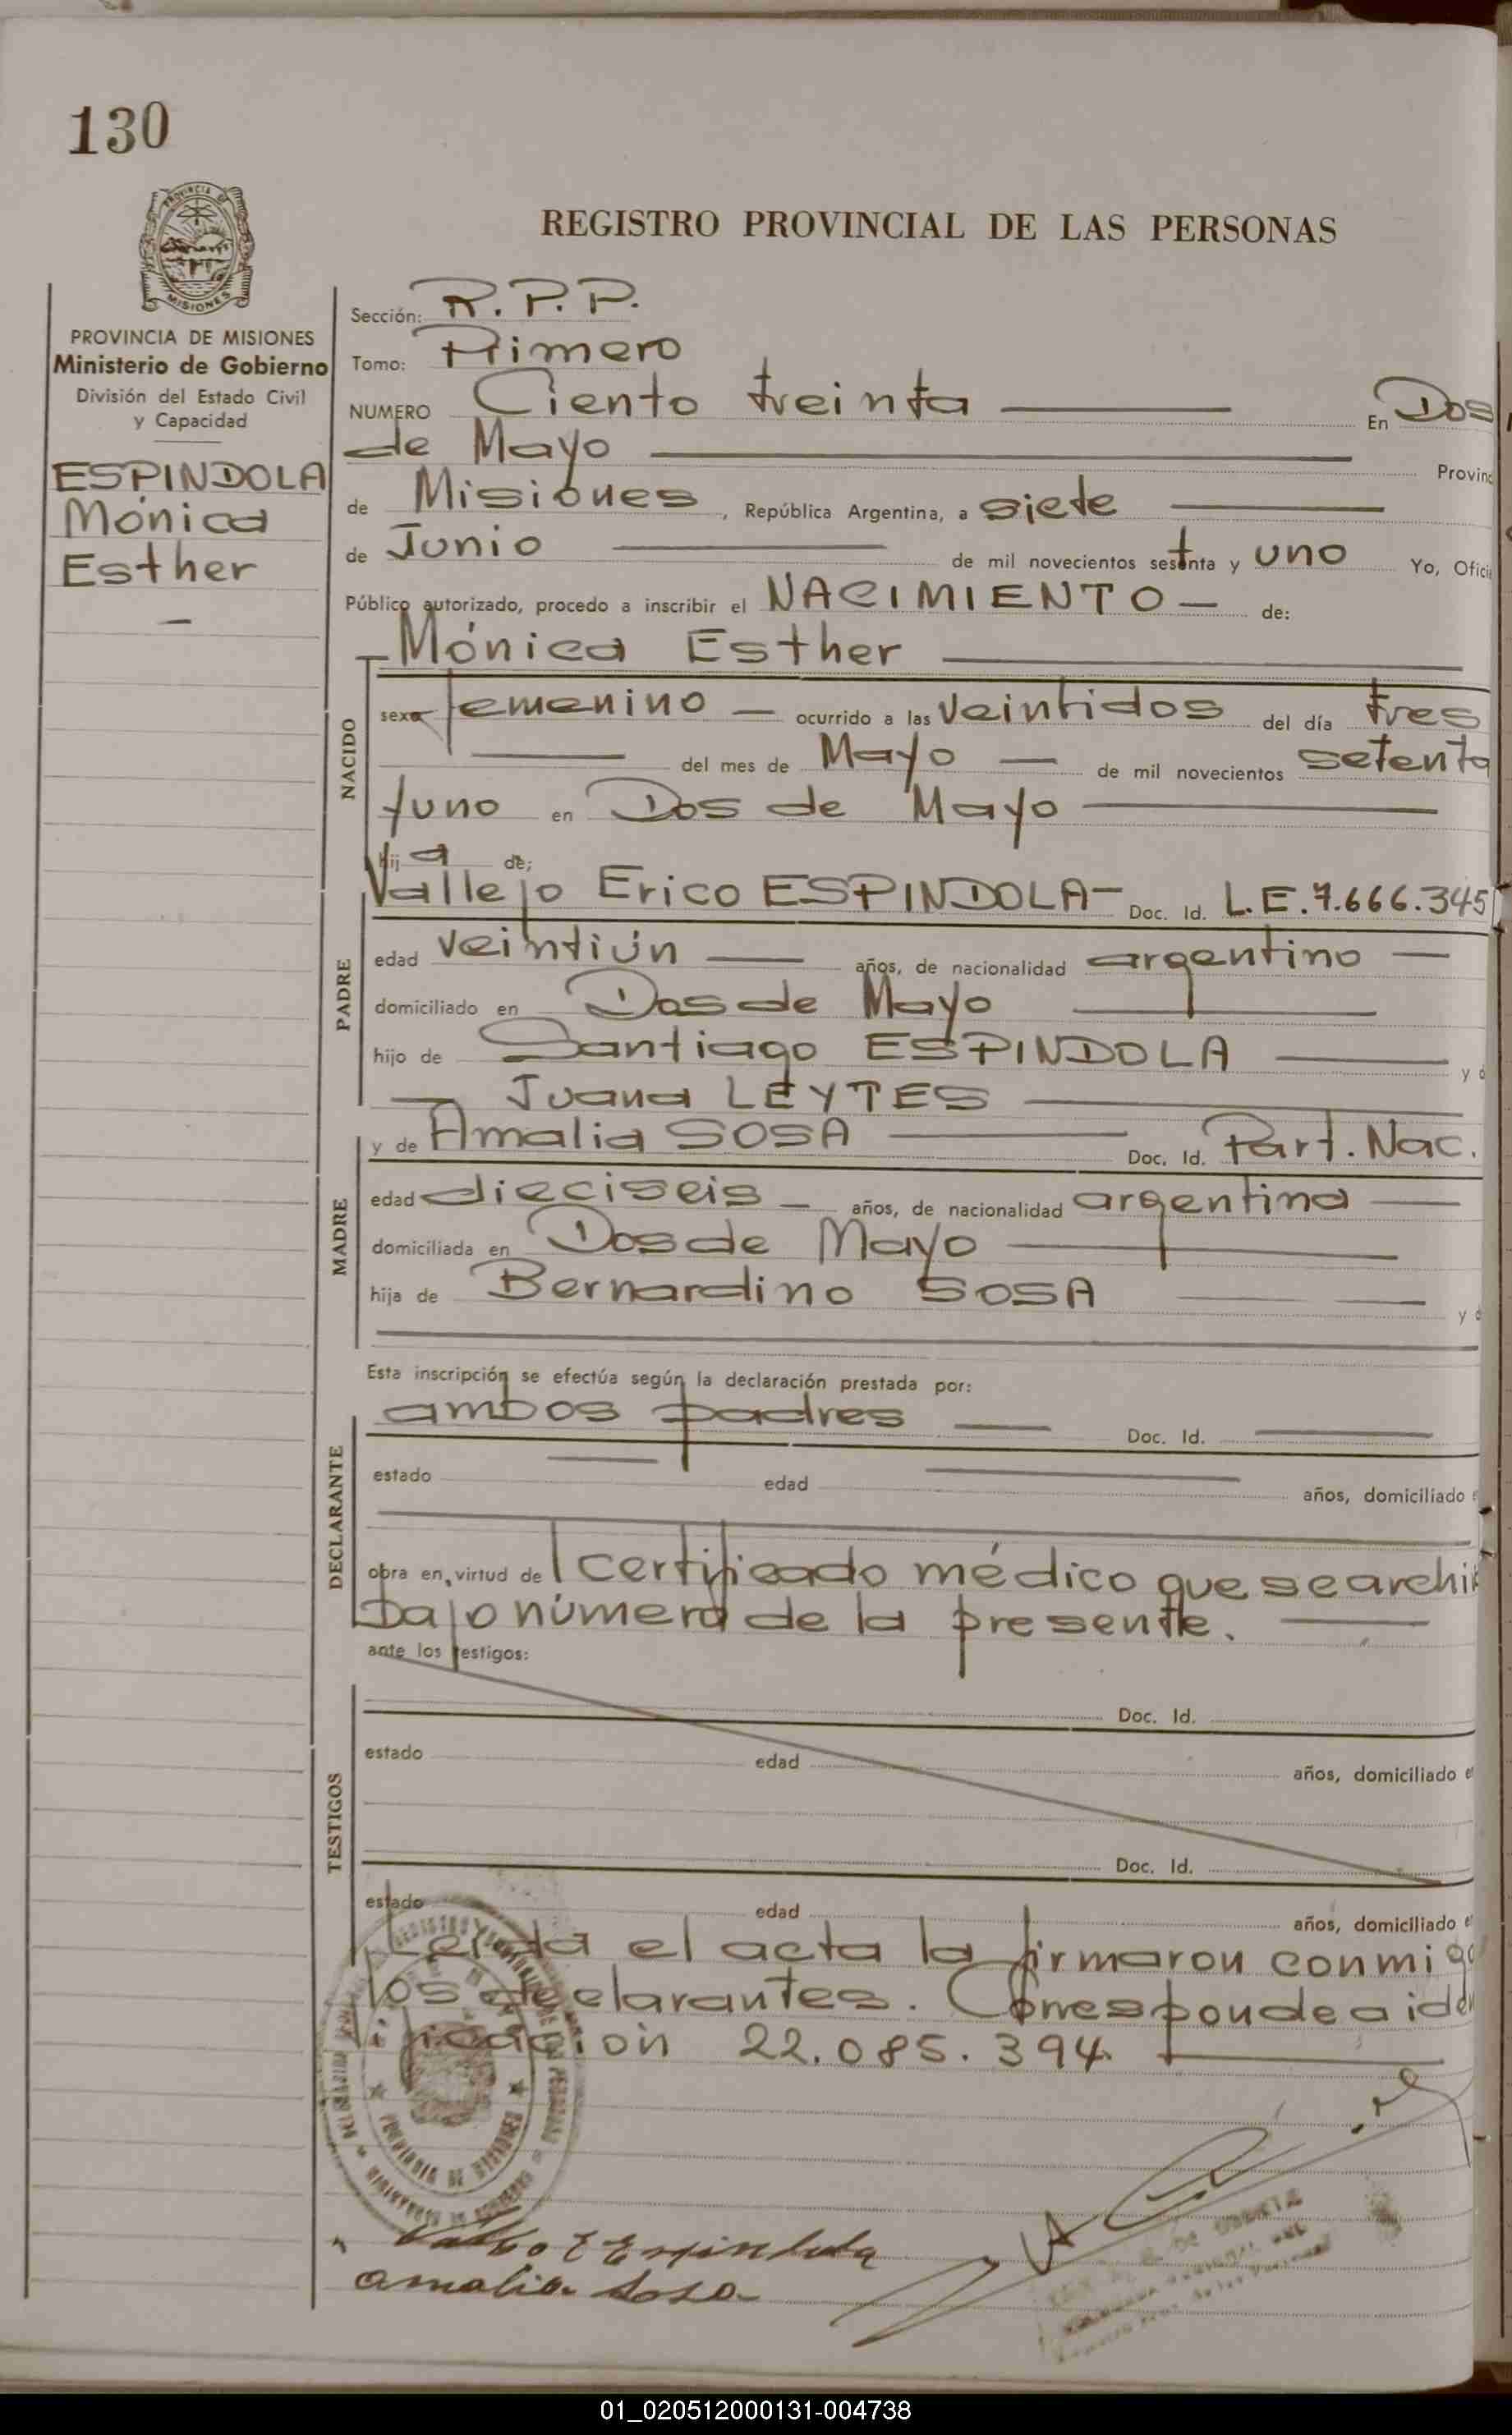 130
PROVINCIA
MISIONES
REGISTRO PROVINCIAL DE LAS PERSONAS
PROVINCIA DE MISIONES
Ministerio de Gobierno
División del Estado Civil
y Capacidad
ESPINDOLA
Mónica
Esther
Sección: R.P.P.
Tomo: Primero
NUMERO Ciento treinta En Dos
de Mayo Provinc
de Misiones, República Argentina, a siete
de Junio de mil novecientos setenta y uno Yo, Ofici
Público autorizado, procedo a inscribir el NACIMIENTO — de:
Mónica Esther
NACIDO
sexo femenino — ocurrido a las veintidos del día tres
del mes de Mayo — de mil novecientos setenta
y uno en Dos de Mayo
hija de;
Vallejo Erico ESPINDOLA — Doc. Id. L.E. 7.666.345
PADRE
edad veintiún años, de nacionalidad argentino —
domiciliado en Dos de Mayo
hijo de Santiago ESPINDOLA y d
Juana LEYTES
y de Amalia SOSA Doc. Id. Part. Nac.
MADRE
edad dieciseis — años, de nacionalidad argentina
domiciliada en Dos de Mayo
hija de Bernardino SOSA y d
Esta inscripción se efectúa según la declaración prestada por:
ambos padres Doc. Id.
DECLARANTE
estado edad años, domiciliado e
obra en virtud de certificado médico que se archi
bajo número de la presente.
ante los testigos:
Doc. Id.
TESTIGOS
estado edad años, domiciliado e
Doc. Id.
estado edad años, domiciliado e
Leída el acta la firmaron conmigo
los declarantes. Corresponde a iden
tificación 22.085.394.
Vallejo E Espindola
Amalia Sosa
01_020512000131-004738